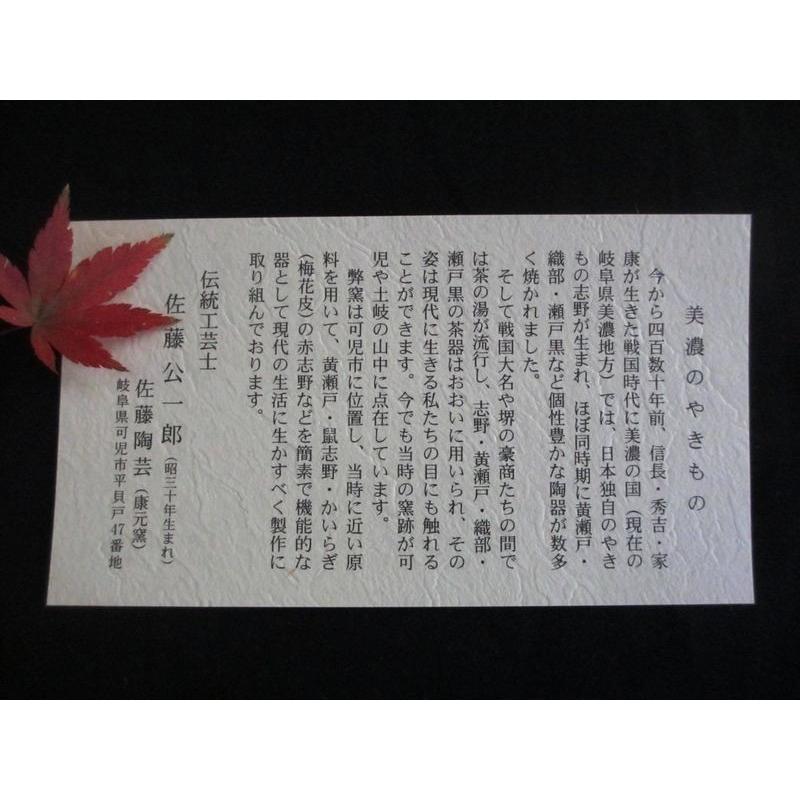 美濃のやきもの
今から四百数十年前、信長・秀吉・家
康が生きた戦国時代に美濃の国（現在の
岐阜県美濃地方）では、日本独自のやき
もの志野が生まれ、ほぼ同時期に黄瀬戸・
織部・瀬戸黒など個性豊かな陶器が数多
く焼かれました。
そして戦国大名や堺の豪商たちの間で
は茶の湯が流行し、志野・黄瀬戸・織部・
瀬戸黒の茶器はおおいに用いられ、その
姿は現代に生きる私たちの目にも触れる
ことができます。今でも当時の窯跡が可
児や土岐の山中に点在しています。
弊窯は可児市に位置し、当時に近い原
料を用いて、黄瀬戸・鼠志野・かいらぎ
（梅花皮）の赤志野などを簡素で機能的な
器として現代の生活に生かすべく製作に
取り組んでおります。
伝統工芸士
佐藤公一郎（昭三十年生まれ）
佐藤陶芸（康元窯）
岐阜県可児市平貝戸47番地